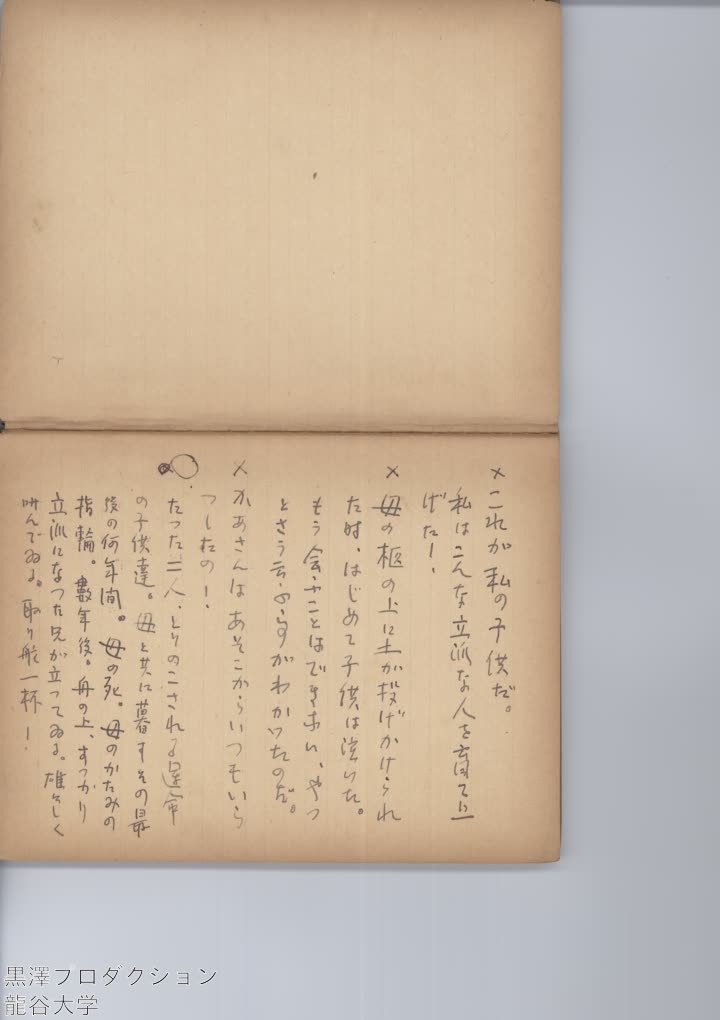 ×これが私の子供だ。
私はこんな立派な人を育て上
げた！
×母の柩の上に土が投げかけられ
た時、はじめて子供は泣いた。
もう会ふことはできない、やつ
とさう云ふ わかつたのだ。
×かあさんはあそこからいつもいら
つしたの！
たった二人、とりのこされる運命
の子供達。母と共に暮すその最
後の何年間。母の死。母のかたみの
指輪。数年後。舟の上、すつかり
立派になつた兄が立つてゐる。雄々しく
叫んでゐる。取り舵一杯！
黒澤プロダクション
龍谷大学